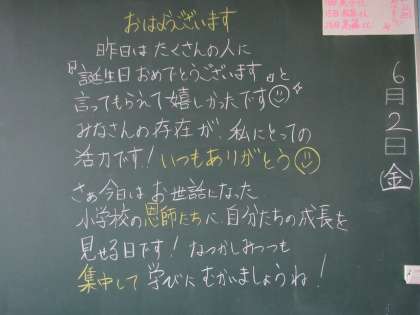 おはようございます
昨日は たくさんの人に
『誕生日おめでとうございます』と
言ってもらえて嬉しかったです
みなさんの存在が、私にとっての
活力です！いつもありがとう
さぁ今日は お世話になった
小学校の恩師たちに、自分たちの成長を
見せる日です！なつかしみつつも
集中して 学びに むかいましょうね！
6月2日(金)